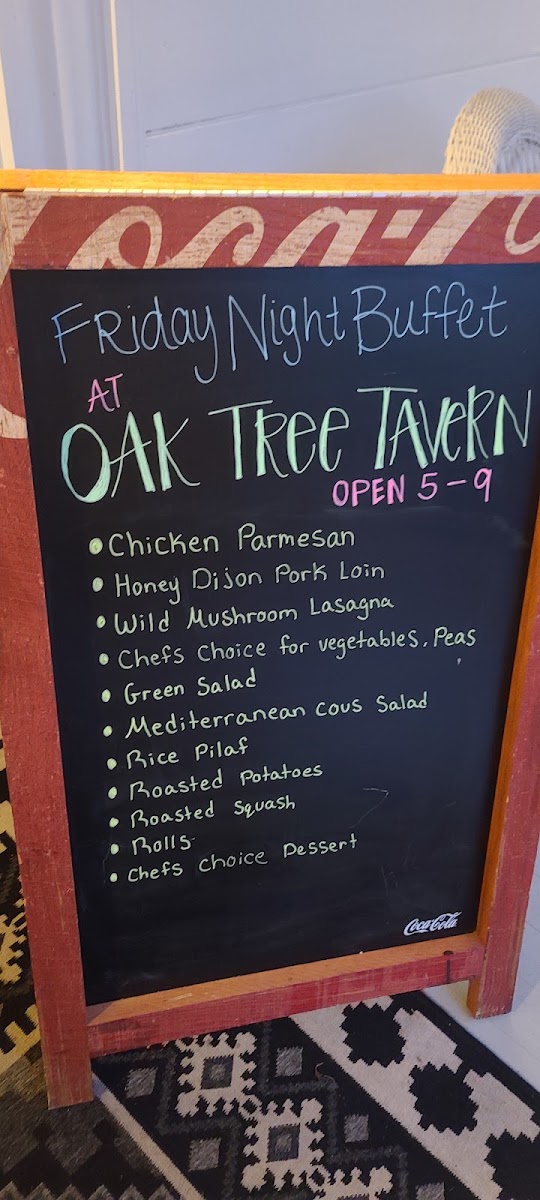 Coca-Co
Friday Night Buffet
AT
OAK TREE TAVERN
OPEN 5-9
• Chicken Parmesan
• Honey Dijon Pork Loin
• Wild Mushroom Lasagna
• Chefs Choice for vegetables, Peas
• Green Salad
• Mediterranean Cous Salad
• Rice Pilaf
• Roasted Potatoes
• Roasted Squash
• Rolls
• Chefs Choice Dessert
Coca-Cola